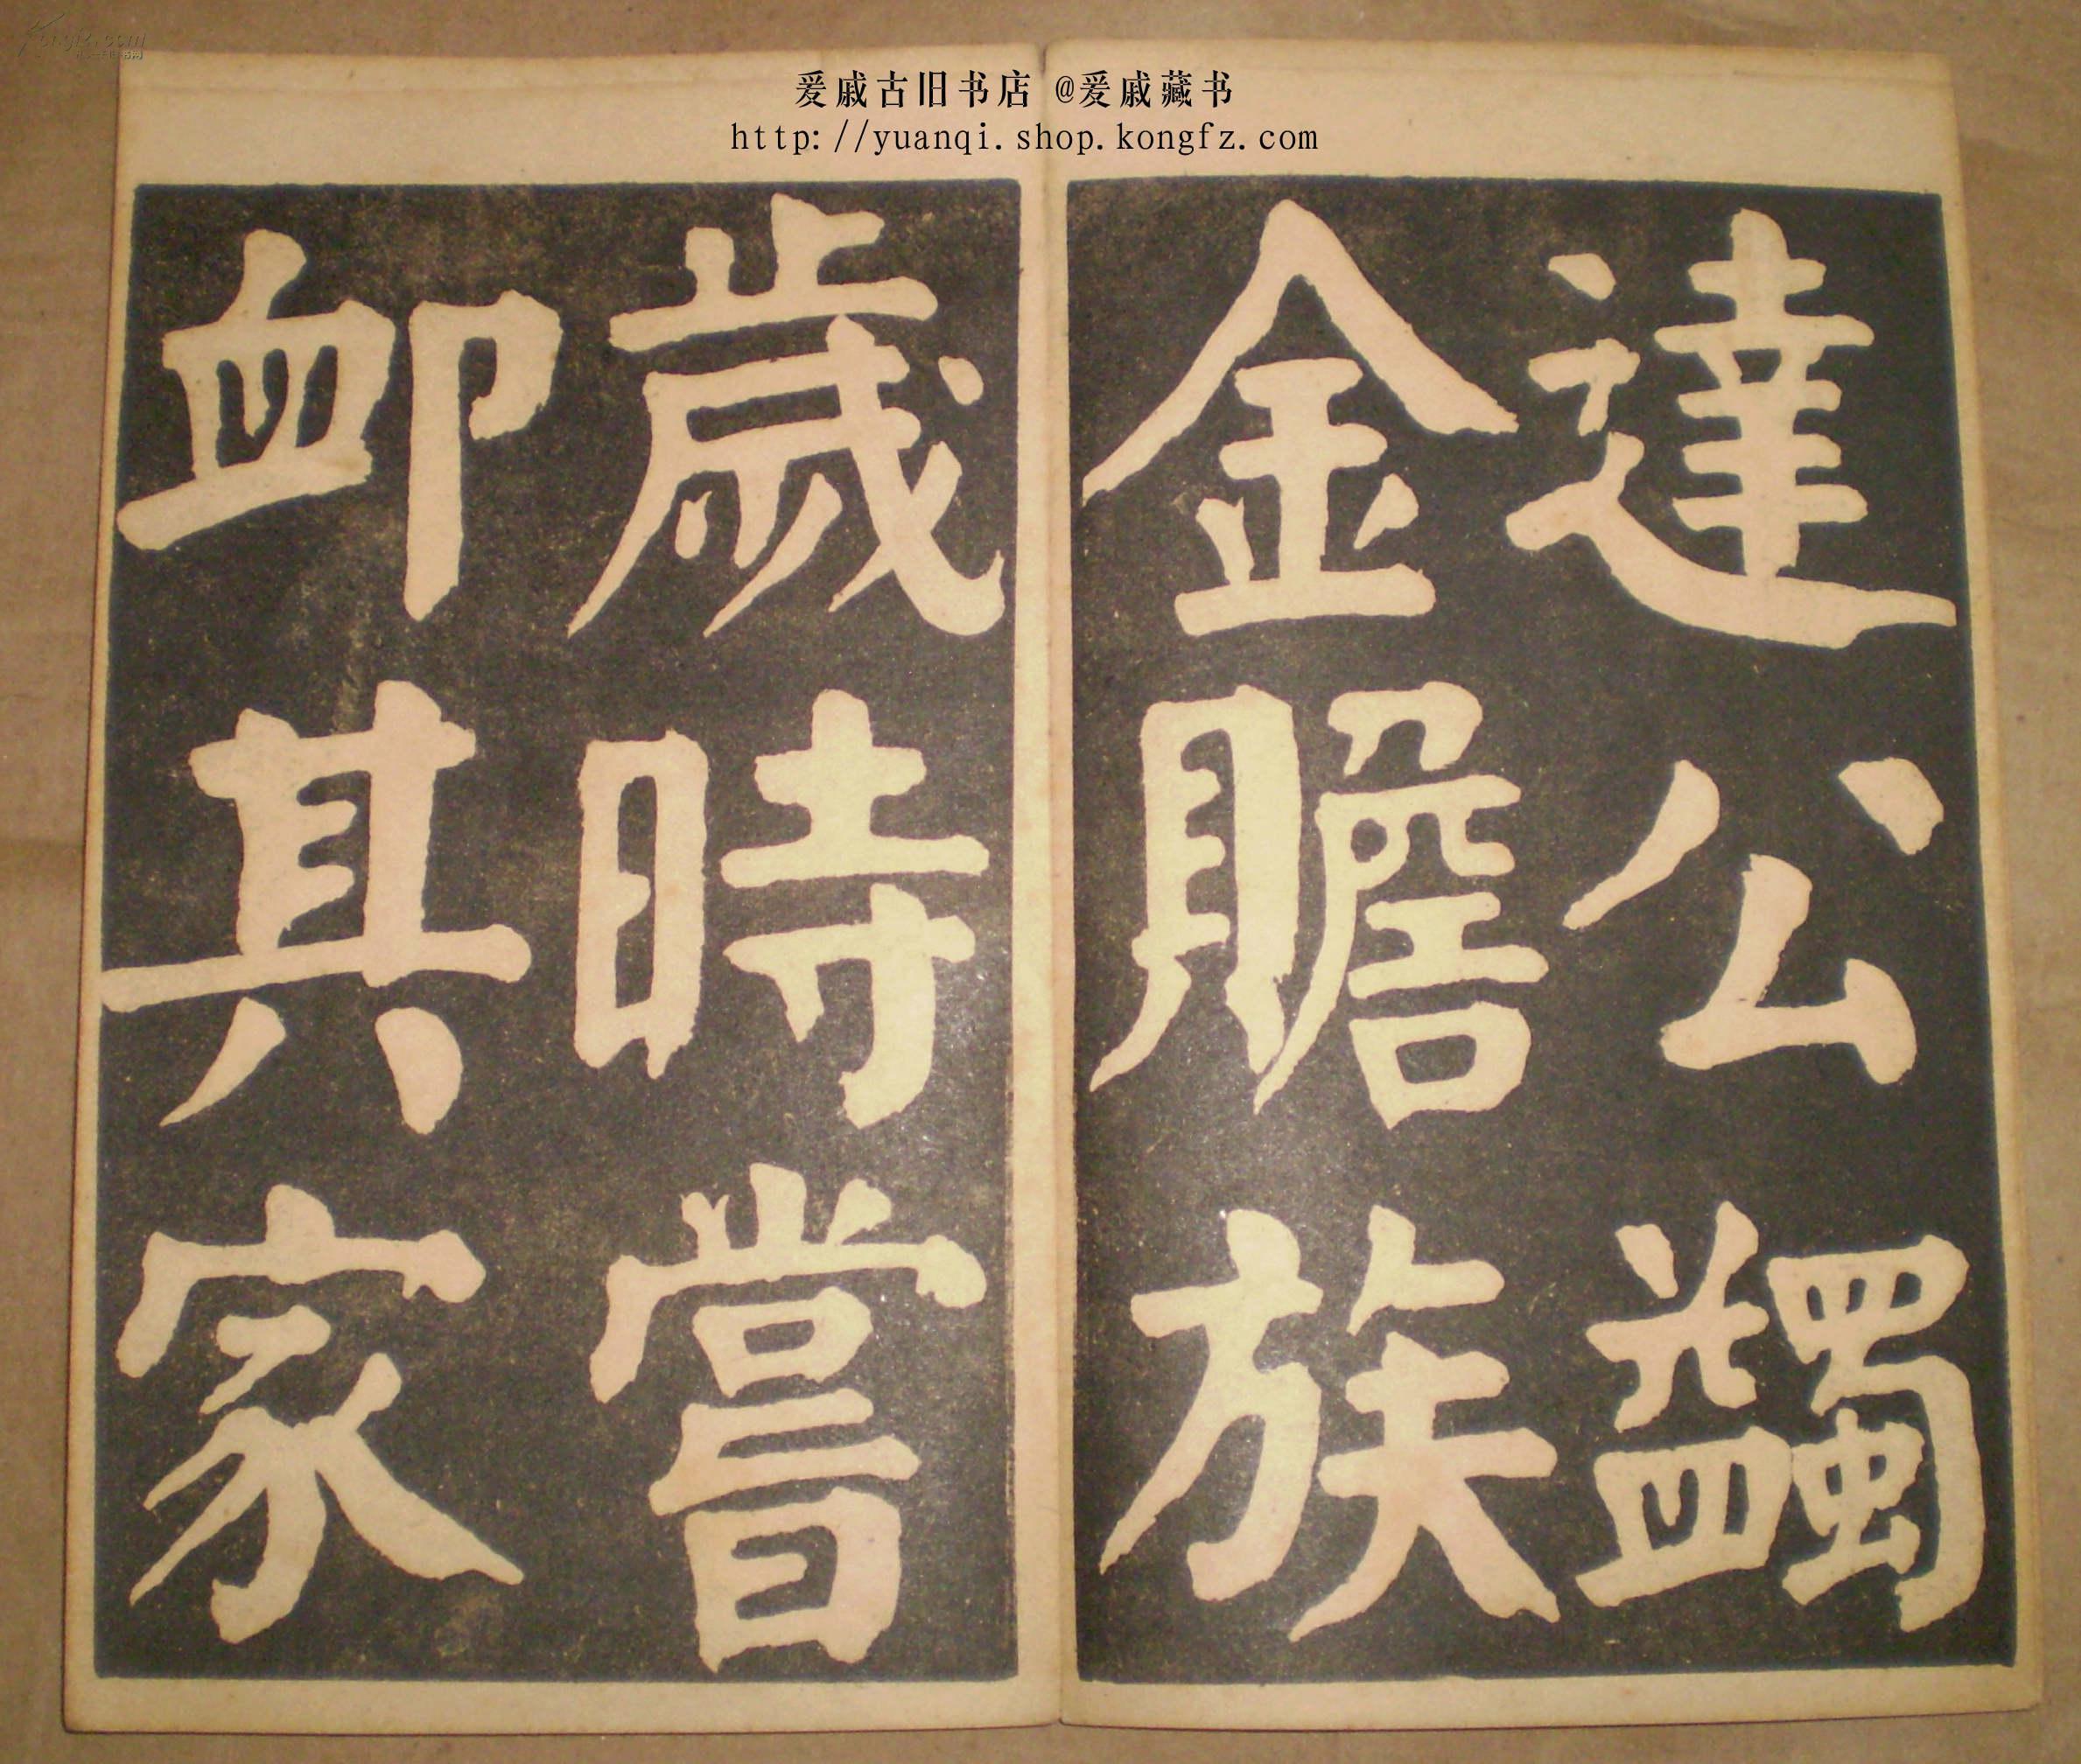 爰戚古旧书店 @爰戚藏书
http://yuanqi.shop.kongfz.com
達公蠲
金贍族
歲時嘗
卹其家